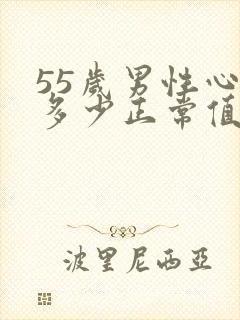 55歲男性心
多少正常值
波里尼西亞